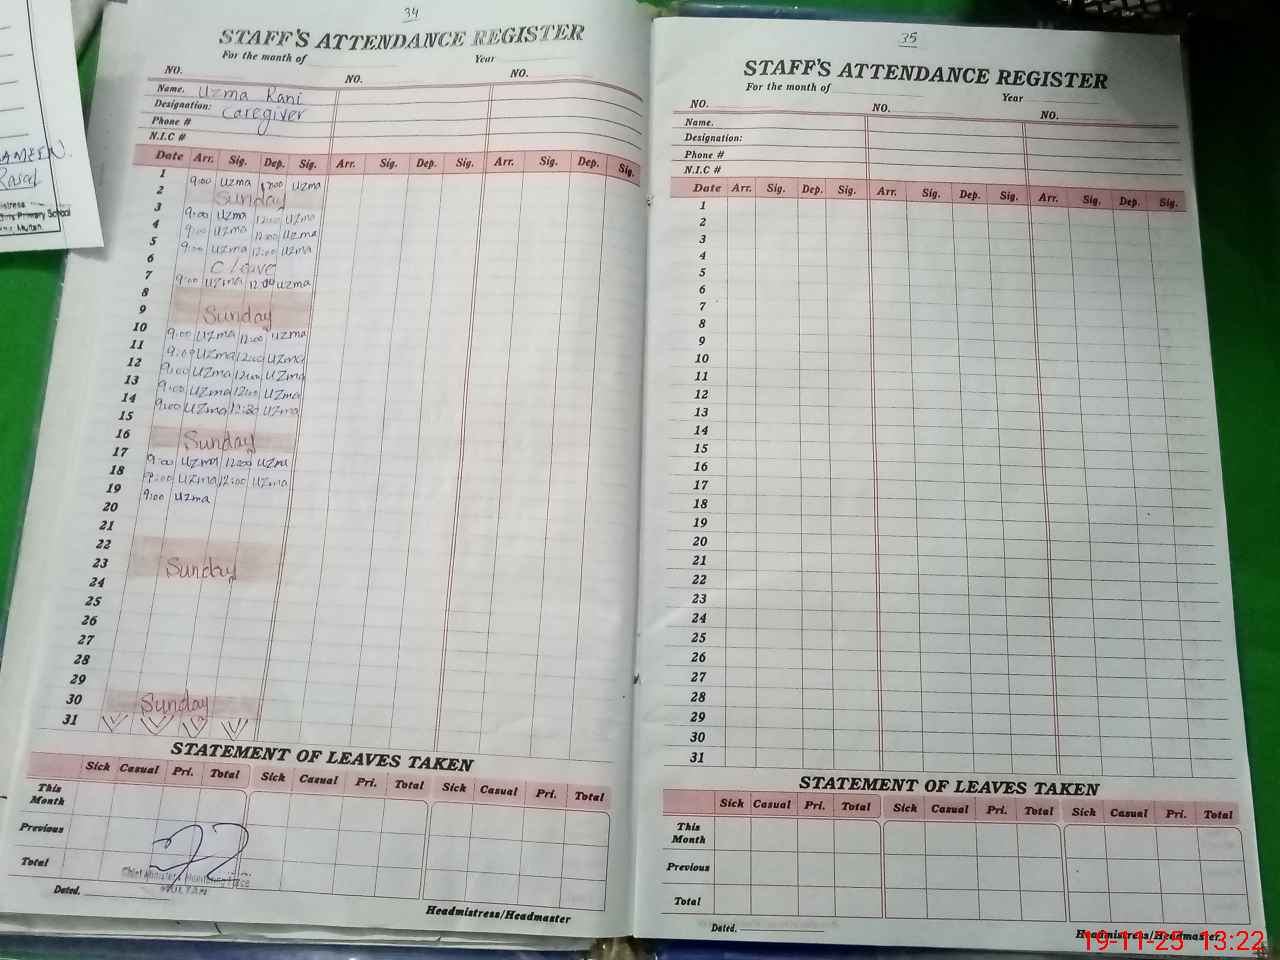 AMEEN.
Rasal
mistress
Girls Primary School
Multan.
34
STAFF'S ATTENDANCE REGISTER
For the month of Year
NO. NO. NO.
Name. Uzma Rani
Designation: Caregiver
Phone #
N.I.C #
Date Arr. Sig. Dep. Sig. Arr. Sig. Dep. Sig. Arr. Sig. Dep. Sig.
1 9:00 Uzma 12:00 Uzma
2 Sunday
3 9:00 Uzma 12:00 Uzma
4 9:00 Uzma 12:00 Uzma
5 9:00 Uzma 12:00 Uzma
6 C/leave
7 9:00 Uzma 12:00 Uzma
8
9 Sunday
10 9:00 Uzma 12:00 Uzma
11 9:00 Uzma 12:00 Uzma
12 9:00 Uzma 12:00 Uzma
13 9:00 Uzma 12:00 Uzma
14 9:00 Uzma 12:30 Uzma
15
16 Sunday
17 9:00 Uzma 12:00 Uzma
18 9:00 Uzma 12:00 Uzma
19 9:00 Uzma
20
21
22
23 Sunday
24
25
26
27
28
29
30 Sunday
31
STATEMENT OF LEAVES TAKEN
Sick Casual Pri. Total Sick Casual Pri. Total Sick Casual Pri. Total
This Month
Previous
Total
Chief Minister's Monitoring Force
MULTAN
Dated.
Headmistress/Headmaster
35
STAFF'S ATTENDANCE REGISTER
For the month of Year
NO. NO. NO.
Name.
Designation:
Phone #
N.I.C #
Date Arr. Sig. Dep. Sig. Arr. Sig. Dep. Sig. Arr. Sig. Dep. Sig.
1
2
3
4
5
6
7
8
9
10
11
12
13
14
15
16
17
18
19
20
21
22
23
24
25
26
27
28
29
30
31
STATEMENT OF LEAVES TAKEN
Sick Casual Pri. Total Sick Casual Pri. Total Sick Casual Pri. Total
This Month
Previous
Total
Dated.
Headmistress/Headmaster
19-11-25 13:22